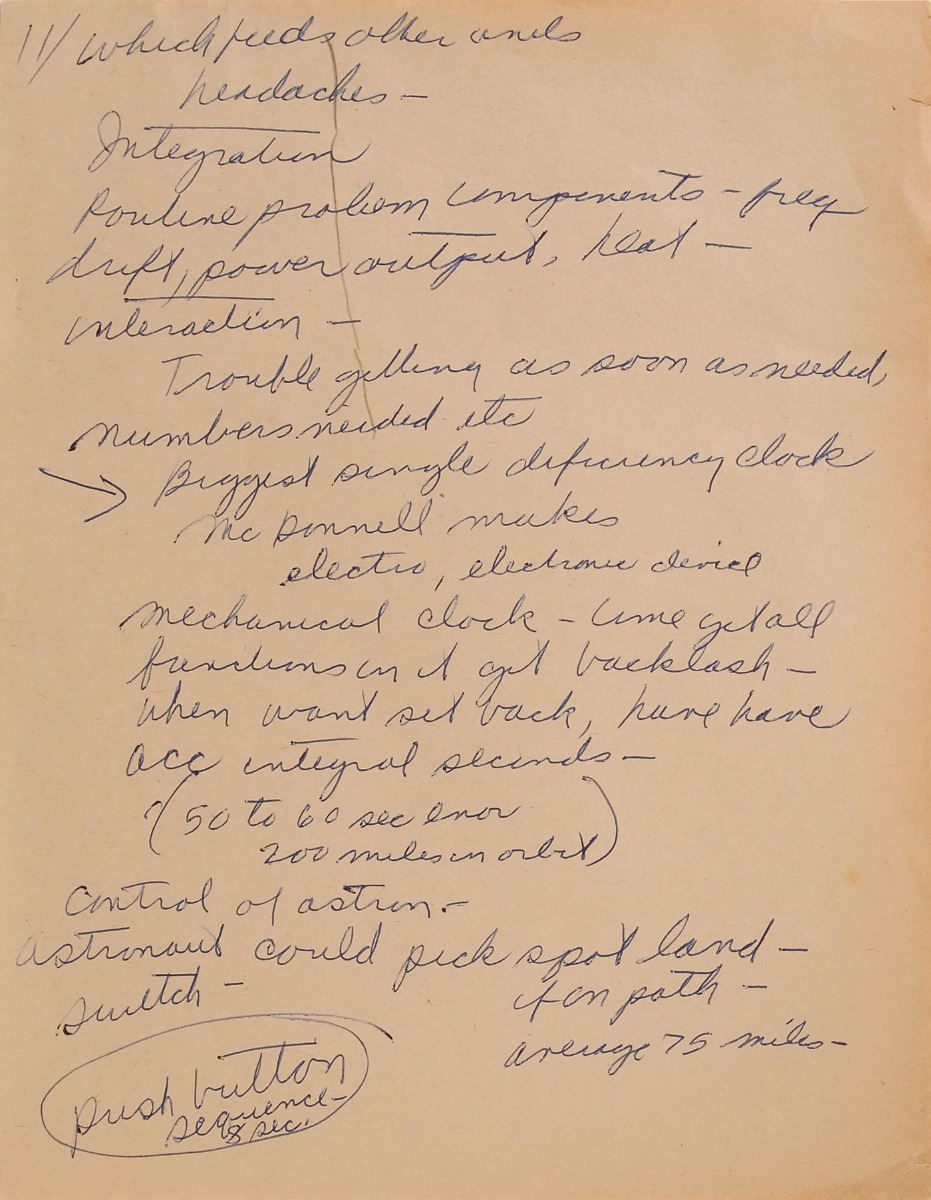 11/ which feeds other ends
headaches —
Integration
Routine problem components - freq
drift, power output, heat —
interaction —
Trouble getting as soon as needed,
numbers needed etc
→ Biggest single deficiency clock
McDonnell makes
electro, electronic device
mechanical clock - time get all
functions in it get backlash —
when want set back, have have
acc integral seconds —
(50 to 60 sec error
200 miles in orbit)
Control of astron. —
Astronaut could pick spot land —
switch — if on path —
average 75 miles —
push button
sequence —
8 sec.